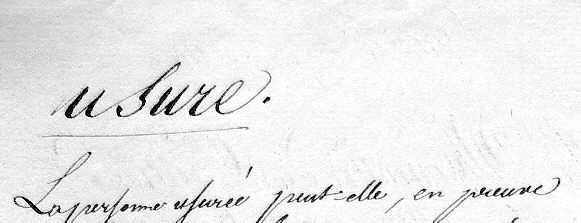 usure.
La personne usurée peut-elle, en preuve